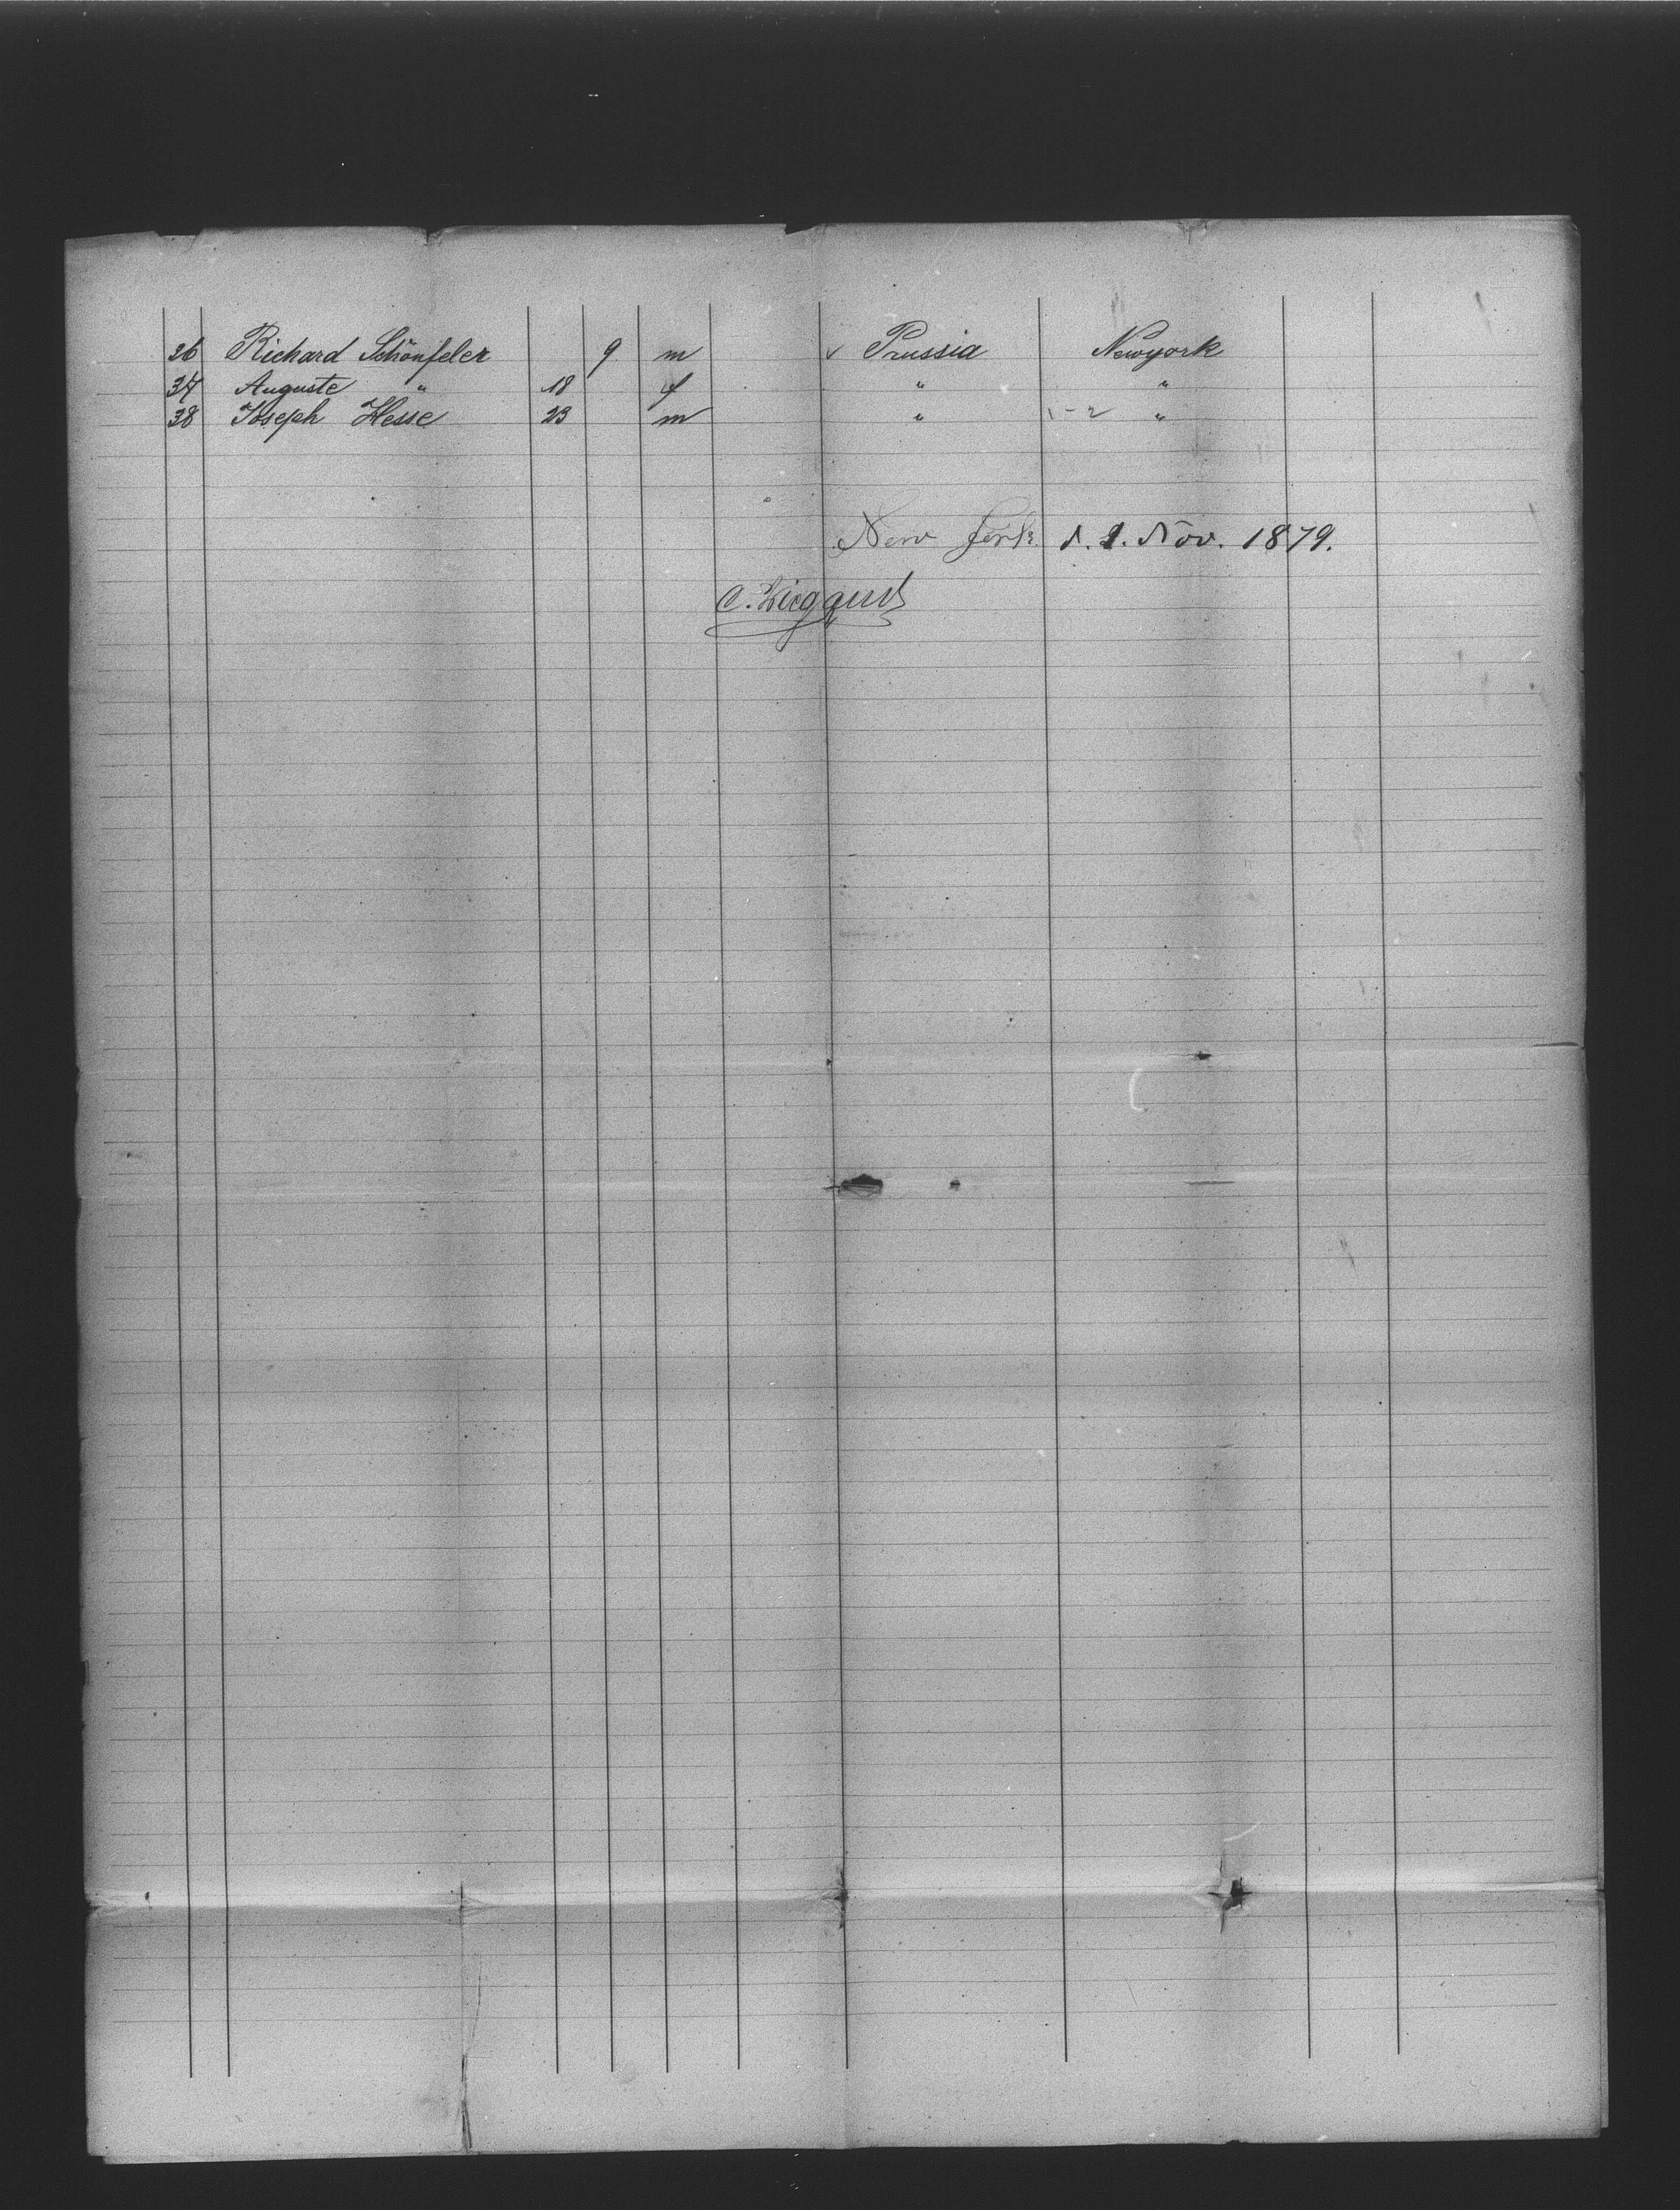 36 Richard Schönfeler 9 m Prussia Newyork
37 Auguste " 18 f " "
38 Joseph Hesse 23 m " "
New York d. 2. Nov. 1879.